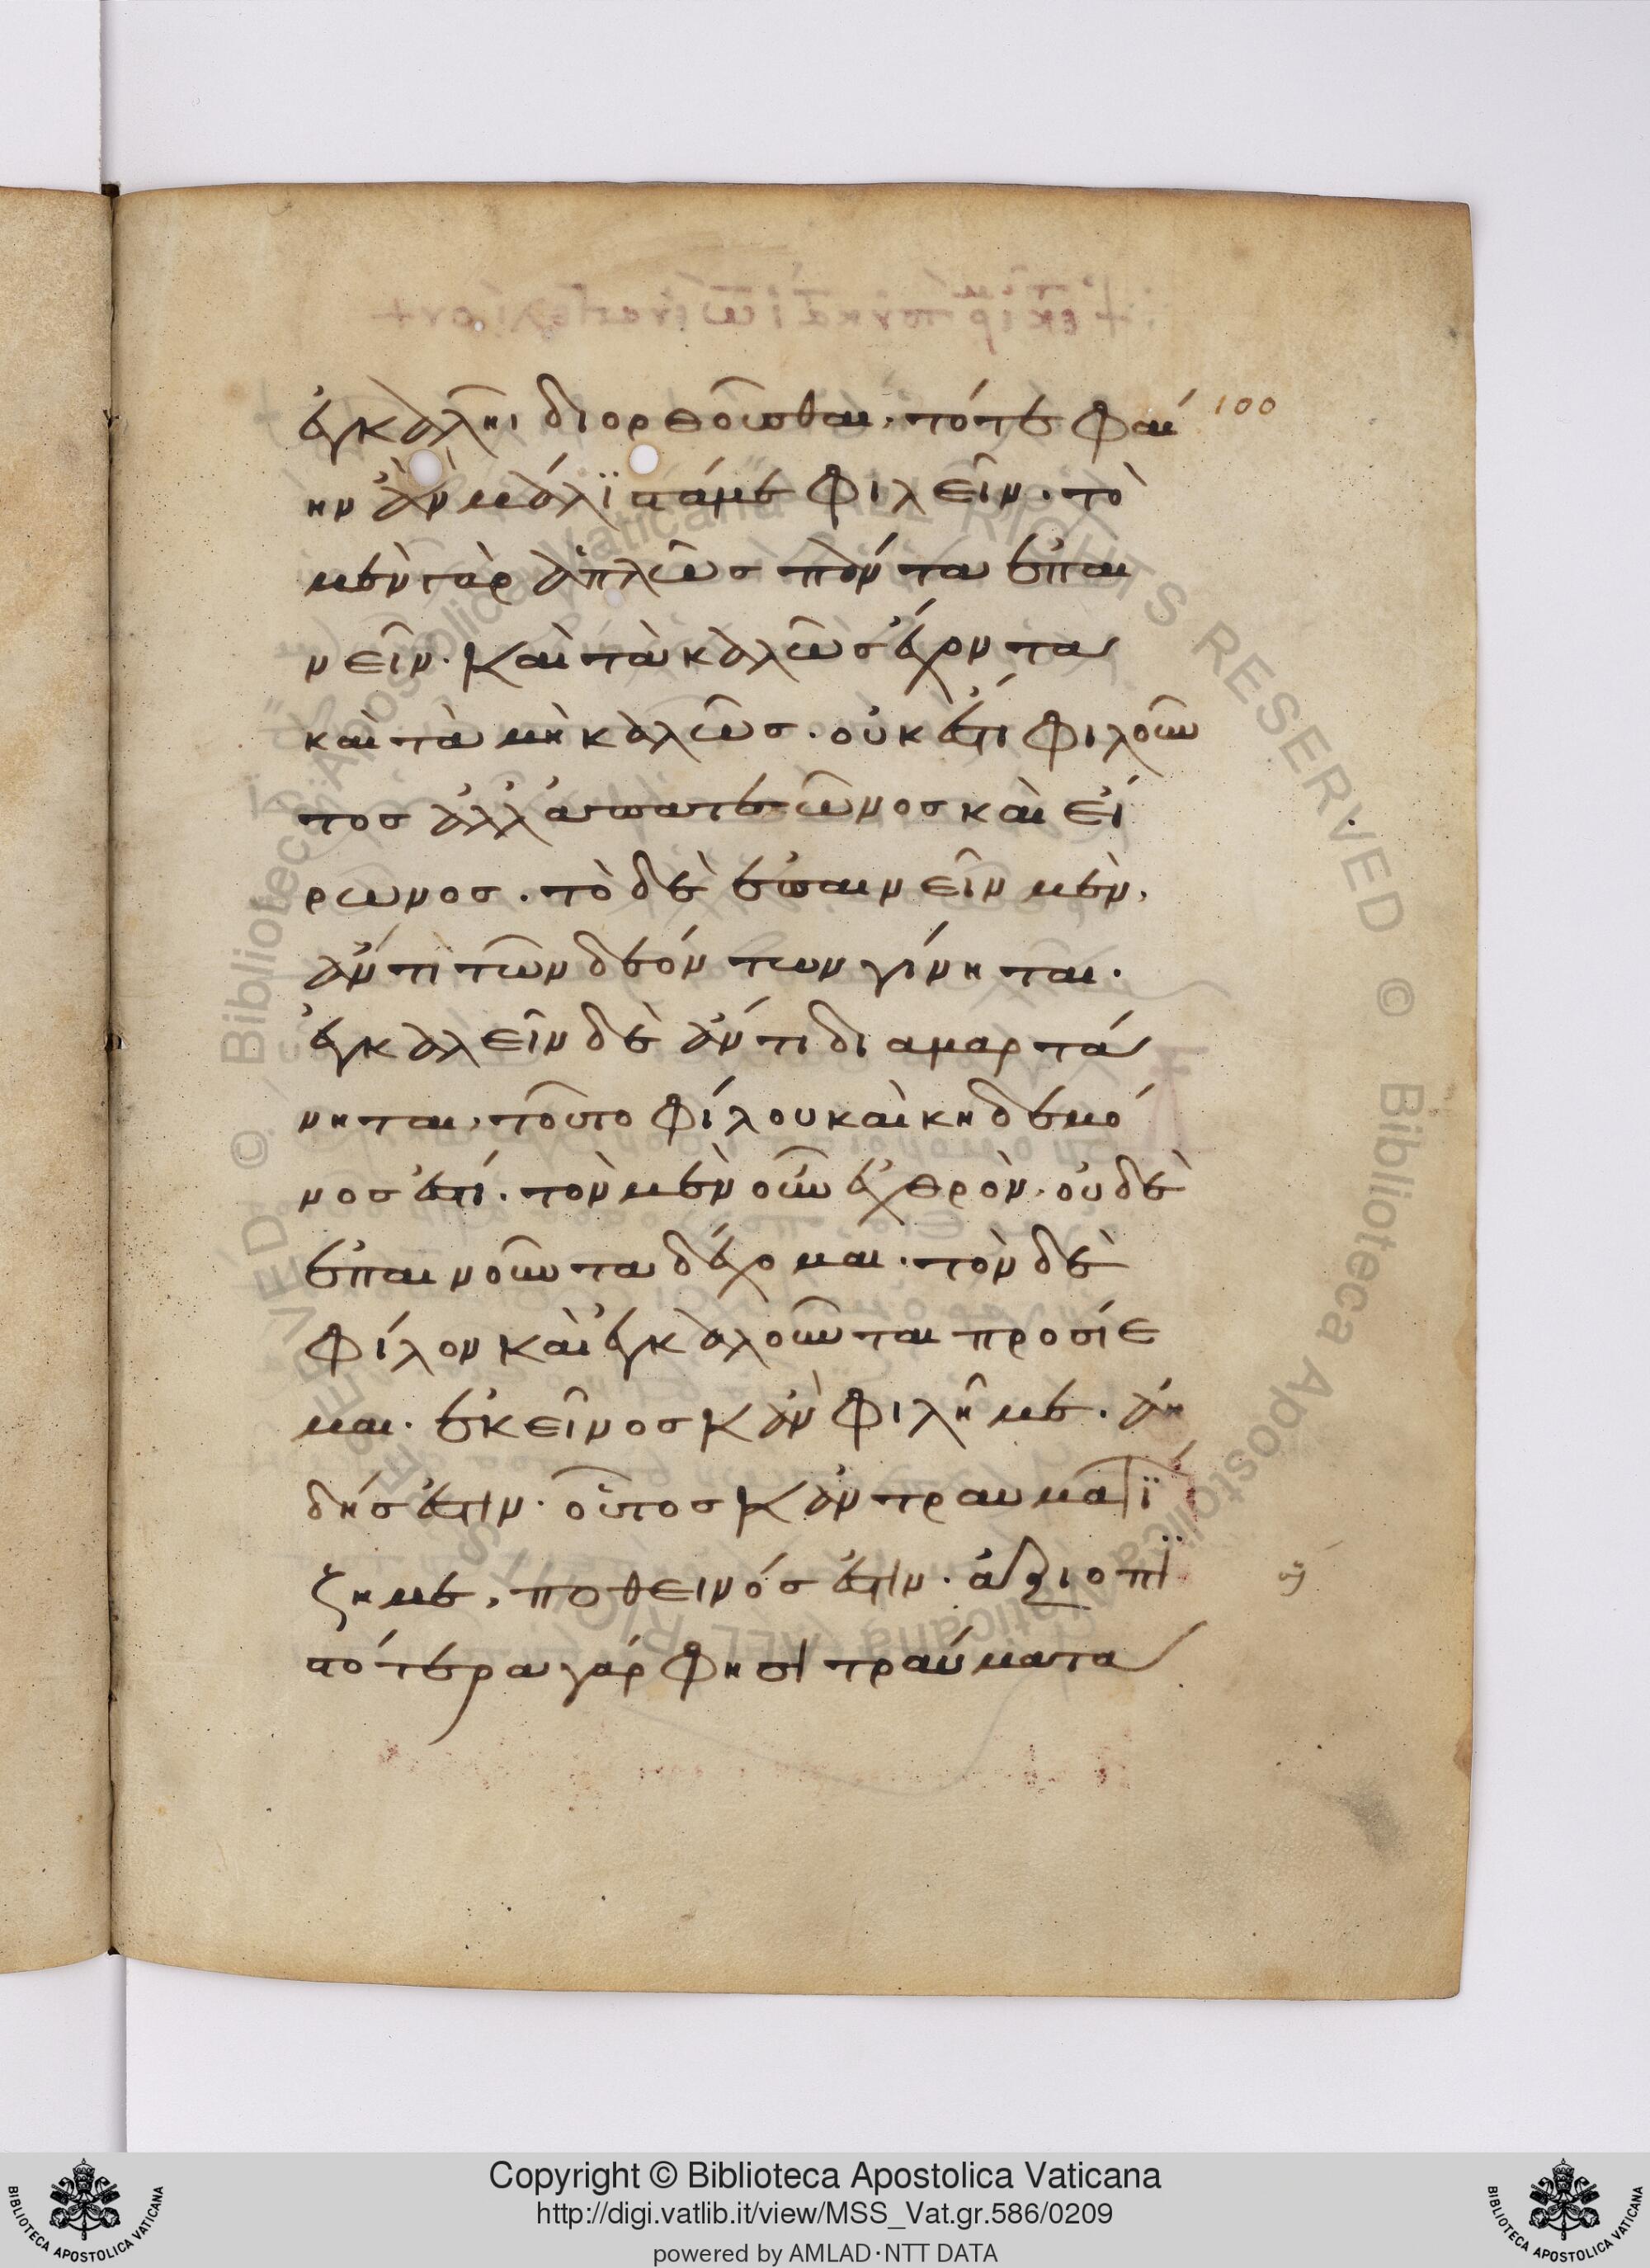 100
ἐγκαλῆι διορθοῦσθαι, τότε φαί
ην ἂν μάλιϊστά με φιλεῖν. τὸ
μὲν γὰρ ἁπλῶς πάντα ἐπαι
νεῖν. καὶ τὰ καλῶς ἔχοντα
καὶ τὰ μὴ καλῶς. οὐκ ἔστι φιλοῦν
τος ἀλλ' ἀπατεῶνος καὶ εἴ
ρωνος. τὸ δὲ ἐπαινεῖν μὲν,
ἄν τι τῶν δεόντων γίνηται.
ἐγκαλεῖν δὲ ἄν τι διαμαρτά
νηται, τοῦτο φίλου καὶ κηδεμό
νος ἐστί. τὸν μὲν οὖν ἐχθρὸν, οὐδὲ
ἐπαινοῦντα δέχομαι. τὸν δὲ
φίλον καὶ ἐγκαλοῦνται προσίε
μαι. ἐκεῖνος κἂν φιλῆ με. ἀη
δής ἐστιν. οὗτος κἂν τραυματί
ζη με, ποθεινός ἐστιν. ἀξιοπι
στότερα γάρ φησι τραύματα
Copyright © Biblioteca Apostolica Vaticana
http://digi.vatlib.it/view/MSS_Vat.gr.586/0209
powered by AMLAD·NTT DATA
BIBLIOTECA APOSTOLICA VATICANA
BIBLIOTECA APOSTOLICA VATICANA